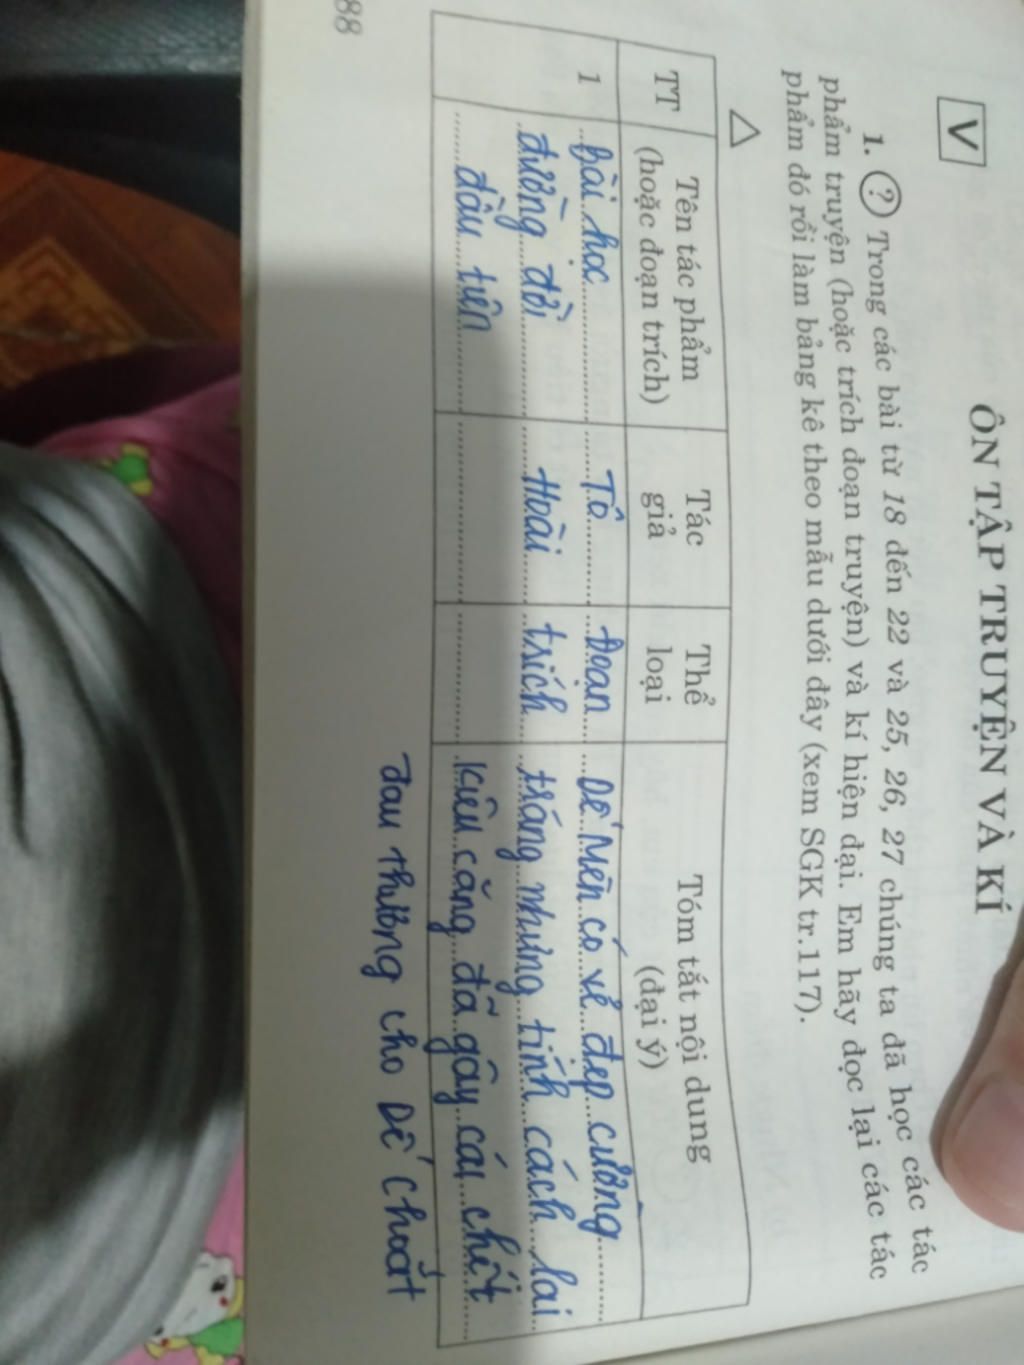 V
ÔN TẬP TRUYỆN VÀ KÍ
1. ? Trong các bài từ 18 đến 22 và 25, 26, 27 chúng ta đã học các tác
phẩm truyện (hoặc trích đoạn truyện) và kí hiện đại. Em hãy đọc lại các tác
phẩm đó rồi làm bảng kê theo mẫu dưới đây (xem SGK tr.117).
TT
Tên tác phẩm
(hoặc đoạn trích)
Tác
giả
Thể
loại
Tóm tắt nội dung
(đại ý)
1
Bài học
đường đời
đầu tiên
Tô
Hoài
Đoạn
trích
Dế Mèn có vẻ đẹp cường
tráng nhưng tính cách lại
kiêu căng đã gây cái chết
đau thương cho Dế Choắt
88